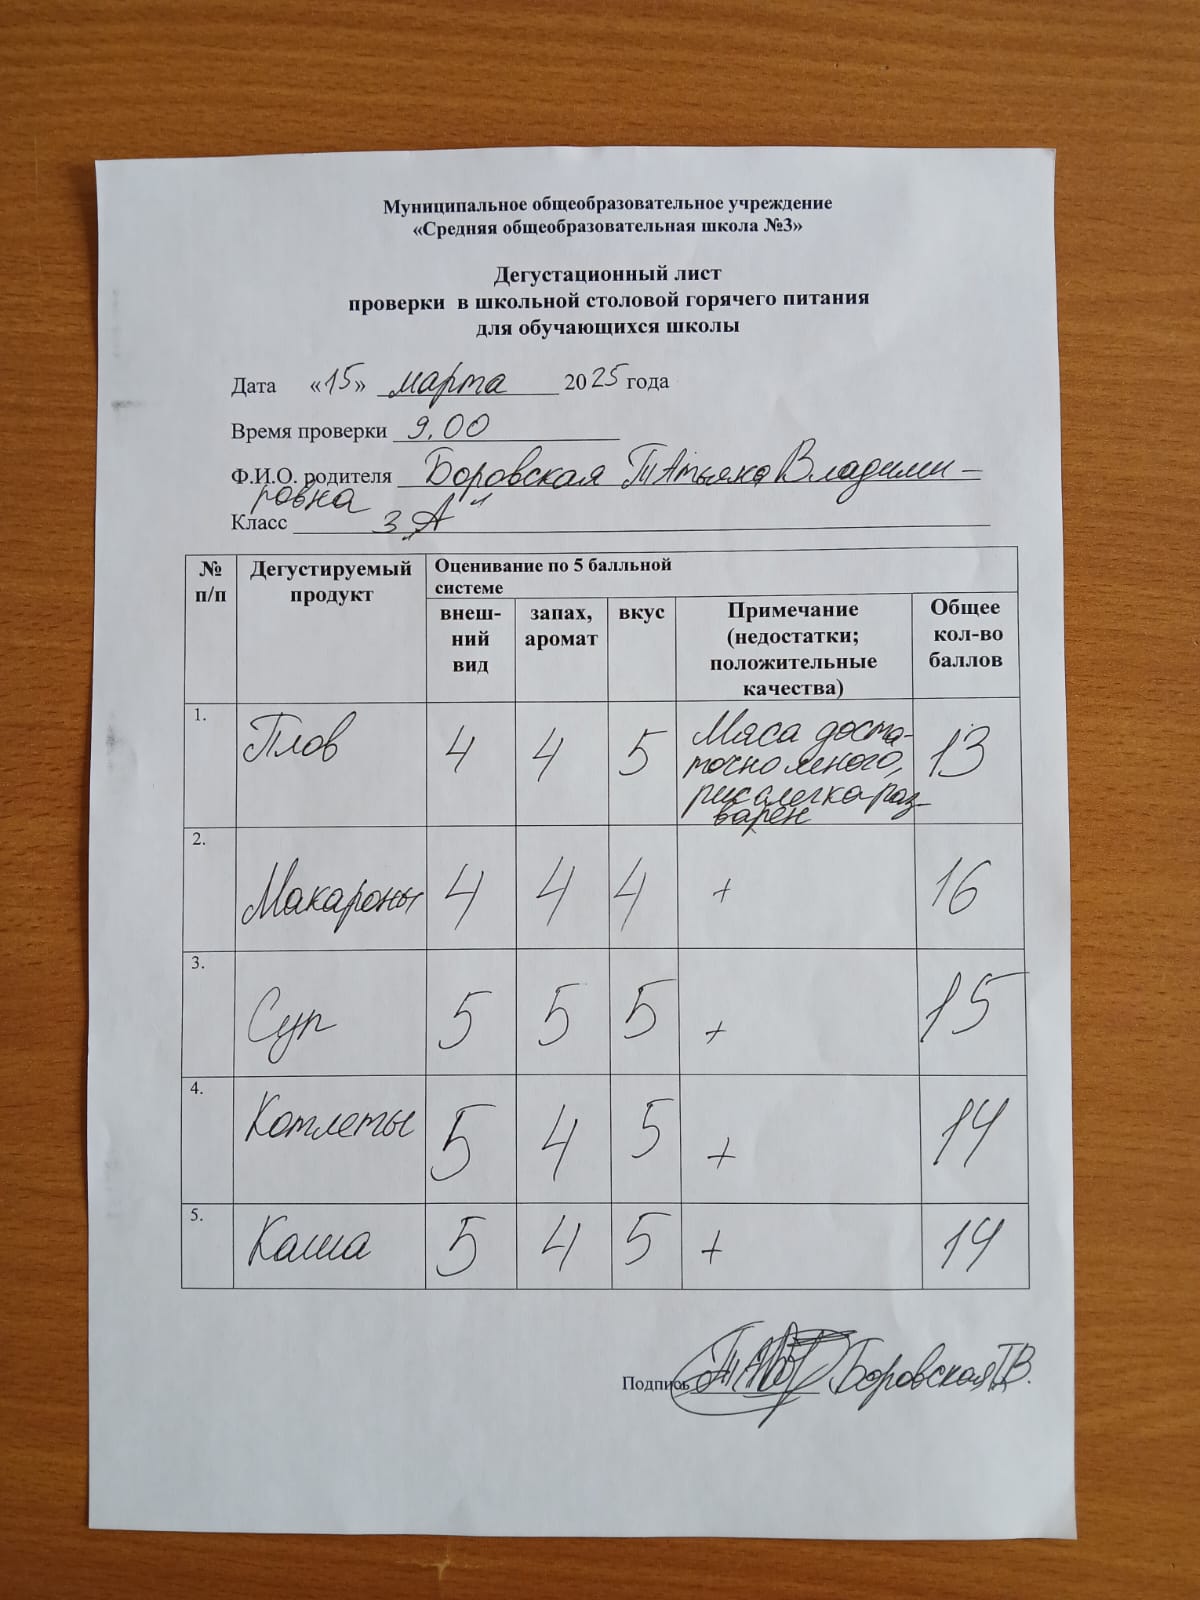 Муниципальное общеобразовательное учреждение
«Средняя общеобразовательная школа №3»
Дегустационный лист
проверки в школьной столовой горячего питания
для обучающихся школы
Дата «15» марта 2025 года
Время проверки 9.00
Ф.И.О. родителя Боровская Татьяна Владими-
ровна
Класс 3 „А"
№ п/п Дегустируемый продукт Оценивание по 5 балльной системе
внеш-ний вид запах, аромат вкус Примечание (недостатки; положительные качества) Общее кол-во баллов
1. Плов 4 4 5 Мяса доста-точно много, рис слегка раз-варен 13
2. Макароны 4 4 4 + 16
3. Суп 5 5 5 + 15
4. Котлеты 5 4 5 + 14
5. Каша 5 4 5 + 14
Подпись Боровская Т.В.